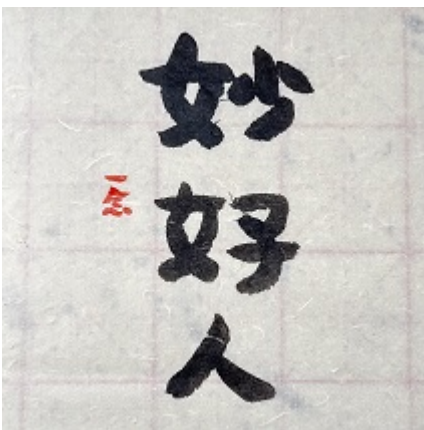 妙好人
一念